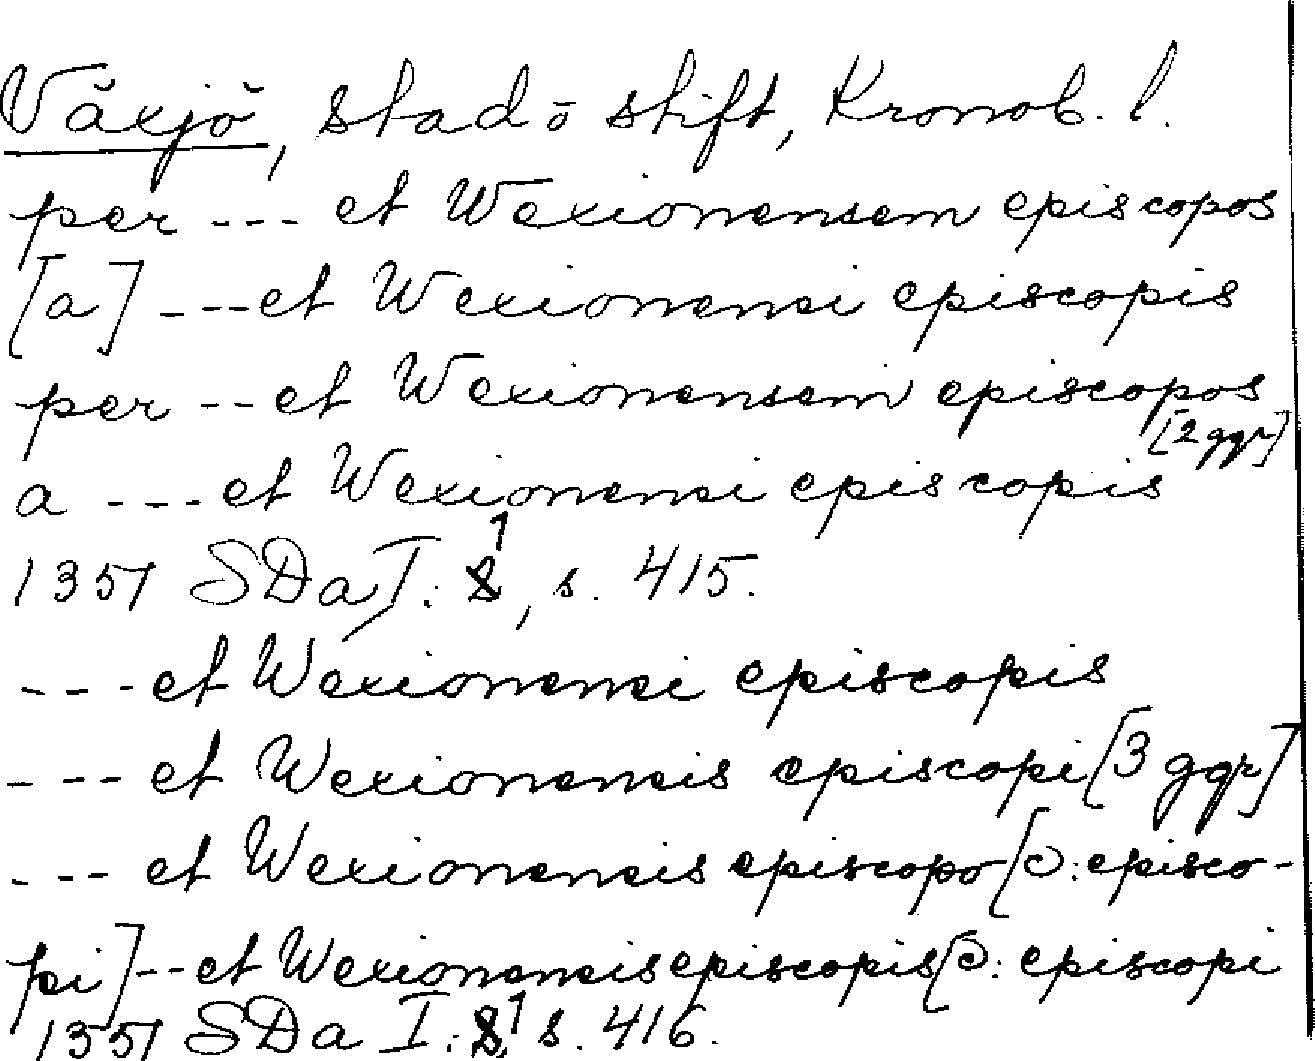 Växjö, stad o stift, Kronob. l.
per --- et Wexionensem episcopos
[a] --- et Wexionensi episcopis
per -- et Wexionensem episcopos
[2 ggr]
a --- et Wexionensi episcopis
1351 SDa I: 1, s. 415.
--- et Wexionensi episcopis
--- et Wexionensis episcopi [3 ggr]
--- et Wexionensis episcopo [ɔ: episco-
pi] -- et Wexionensis episcopis [ɔ: episcopi
1351 SDa I: 1, s. 416.